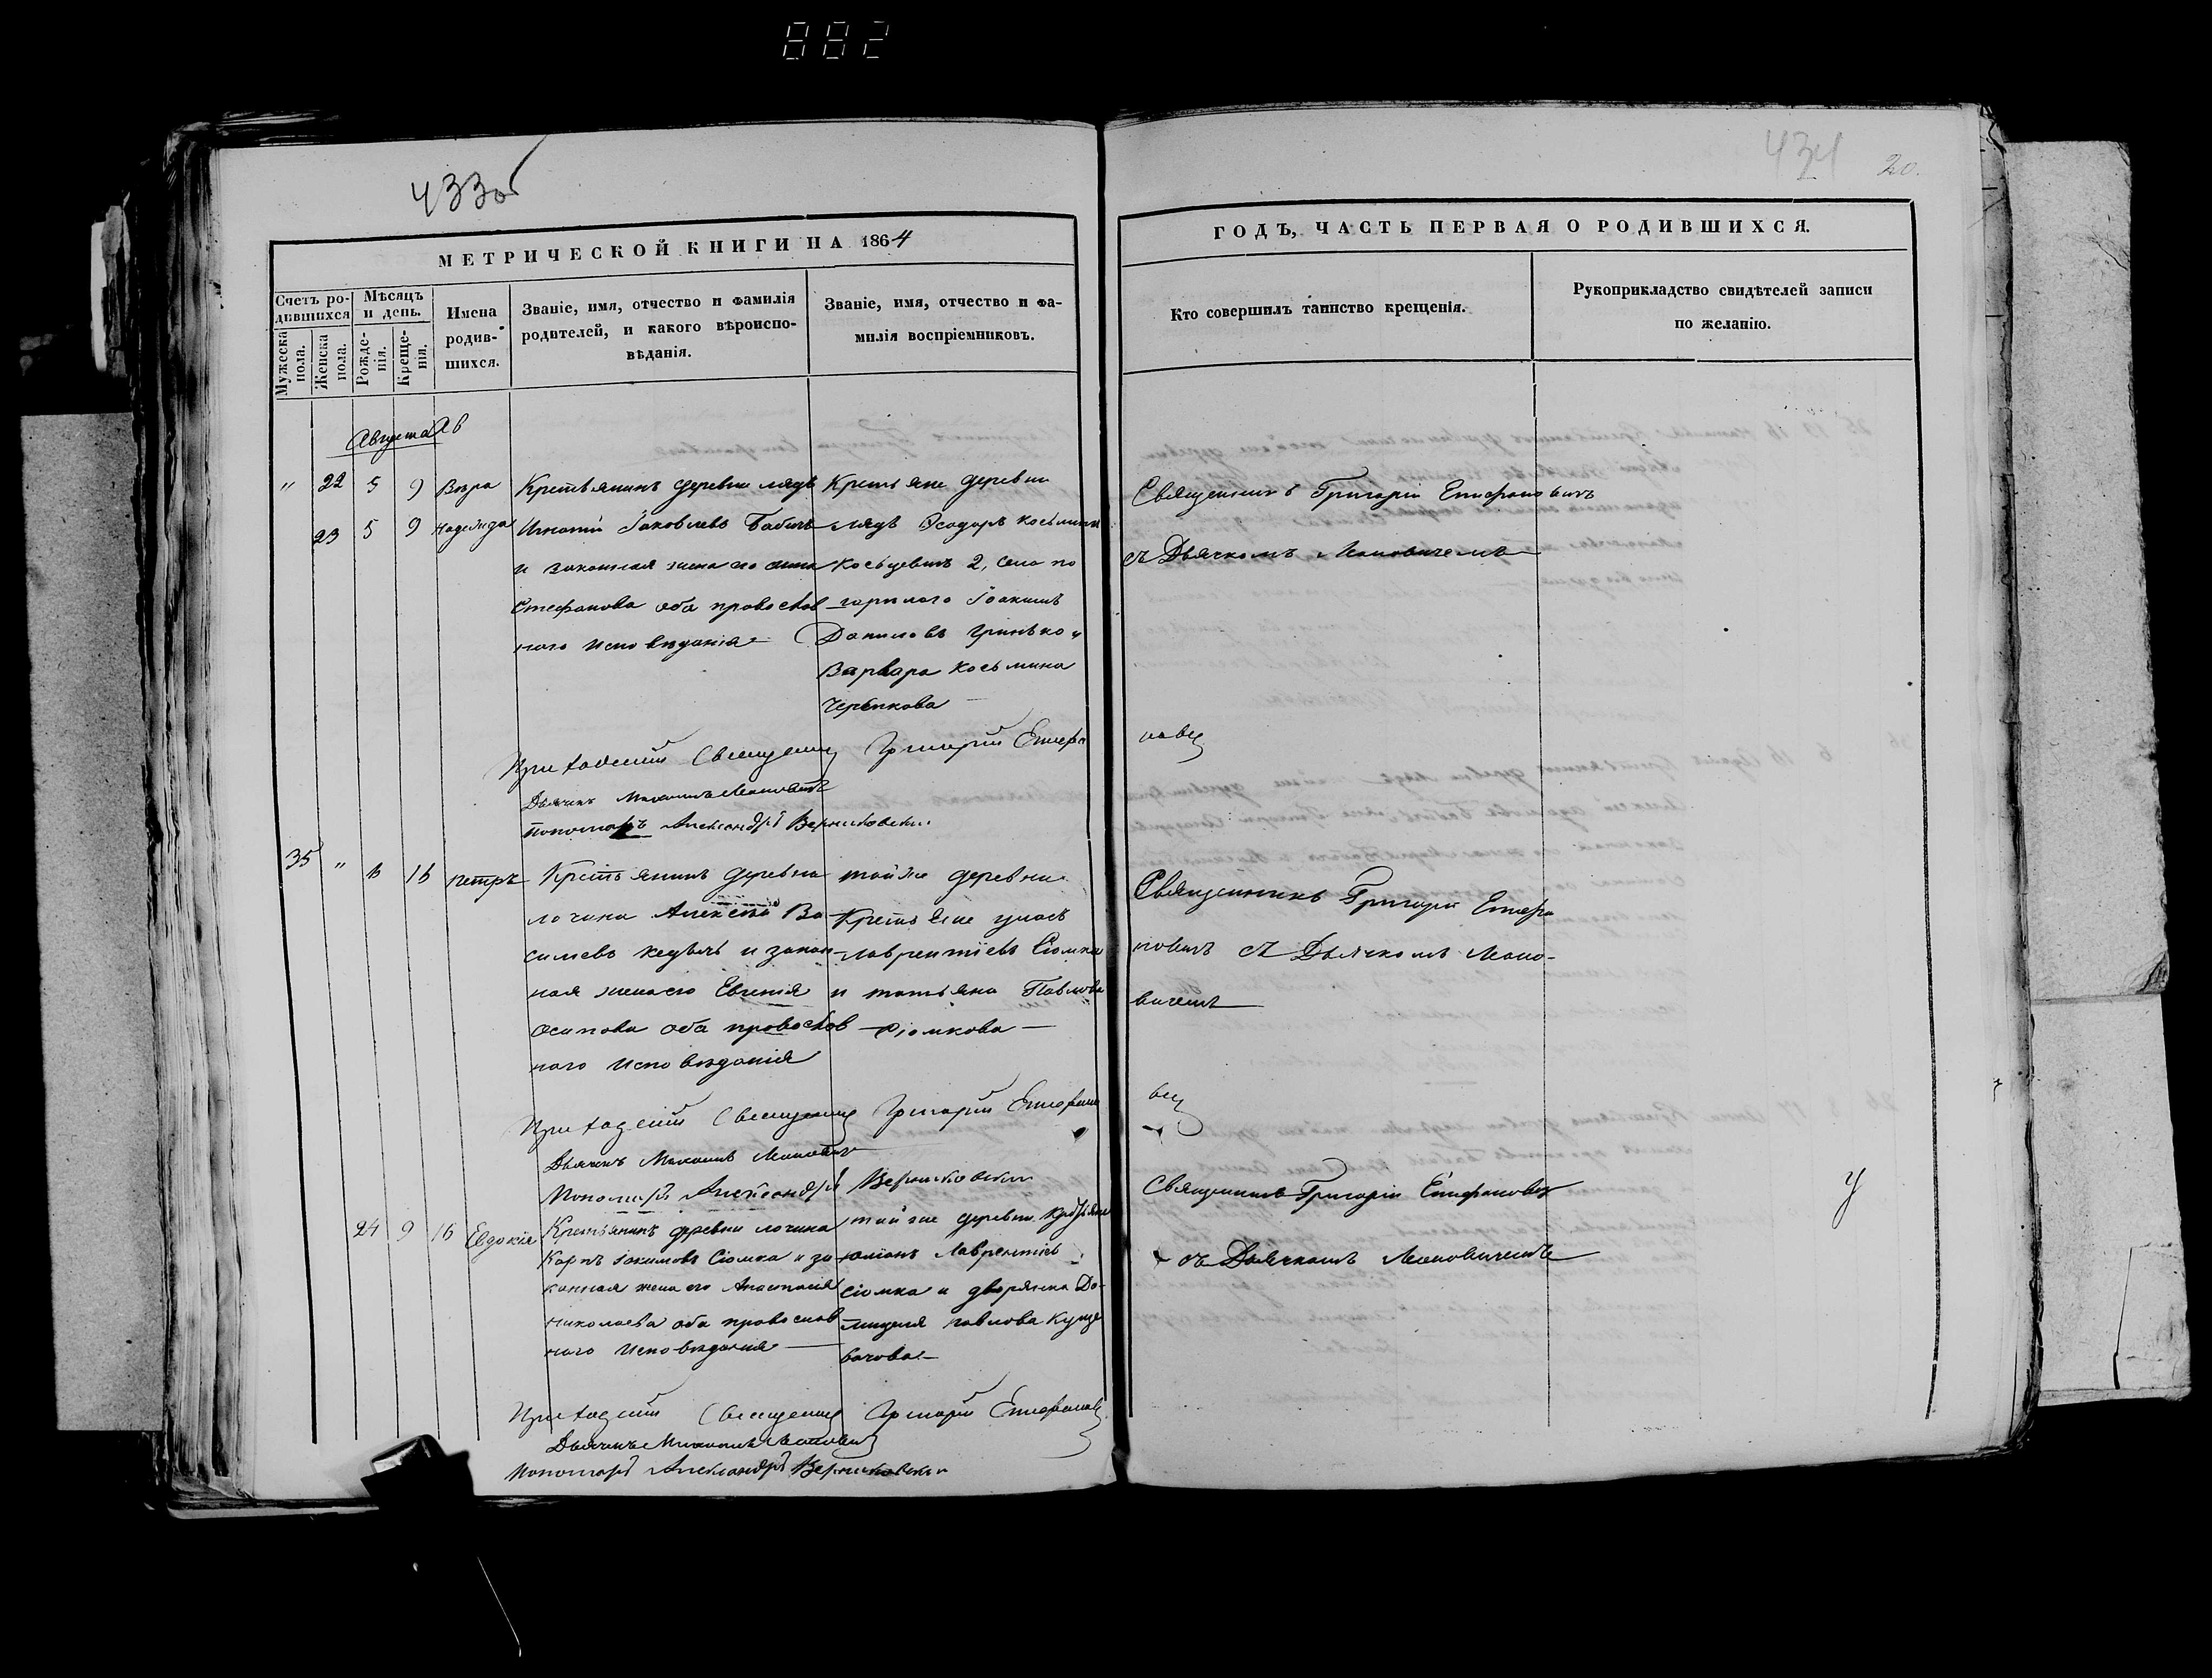 882
433об
434
20.
МЕТРИЧЕСКОЙ КНИГИ НА 1864
ГОДЪ, ЧАСТЬ ПЕРВАЯ О РОДИВШИХСЯ.
Счетъ ро-
дившихся
Мужеска
пола.
Женска
пола.
Мѣсяцъ
и день.
Рожде-
нія.
Креще-
нія.
Имена
родив-
шихся.
Званіе, имя, отчество и фамилія
родителей, и какого вѣроиспо-
вѣданія.
Званіе, имя, отчество и фа-
милія воспріемниковъ.
Кто совершилъ таинство крещенія.
Рукоприкладство свидѣтелей записи
по желанію.
Августа
" 22 5 9 Вѣра
23 5 9 Надежда
Крестьянинъ деревни лядъ
Игнатій Іаковлевъ Бабичъ
и законная жена его
Стефанова оба православ
наго исповѣданія
Крестьяне деревни
лядъ Ѳеодоръ Косьминъ
2, села по
горѣлаго Іоакимъ
Даниловъ Гринько и
Варвара Косьмина
Священникъ Григорій Епифановичъ
съ Дьячкомъ Мановичемъ
Приходскій Священникъ Григорій Епифа
нович
Дьячекъ Михаилъ Мановичъ
Пономарь Александръ Верниковскій
35 " 6 16 Петръ
Крестьянинъ деревни
лочина Алексѣй Ва
сильевъ и закон
ная жена его Евгенія
Осипова оба православ
наго исповѣданія
тойже деревни
Крестьяне
Лаврентіевъ Сіомка
и татьяна Павлова
Сіомкова
Священникъ Григорій Епифа
новичъ съ Дьячкомъ Мано-
вичемъ
Приходскій Священникъ Григорій Епифано
вич
Дьячекъ Михаилъ Мановичъ
Пономарь Александръ Верниковскій
24 9 16 Евдокія
Крестьянинъ деревни лочина
Карпъ Іакимовъ Сіомка и за
конная жена его Анастасія
Николаева оба православ
наго исповѣданія
тойже деревни Крестьяне
Лаврентіевъ
Сіомка и дворянка До-
павлова
Священникъ Григорій Епифанович
съ Дьячкомъ Мановичемъ
у
Приходскій Священникъ Григорій Епифанович
Дьячекъ Михаилъ Мановичъ
Пономарь Александръ Верниковскій